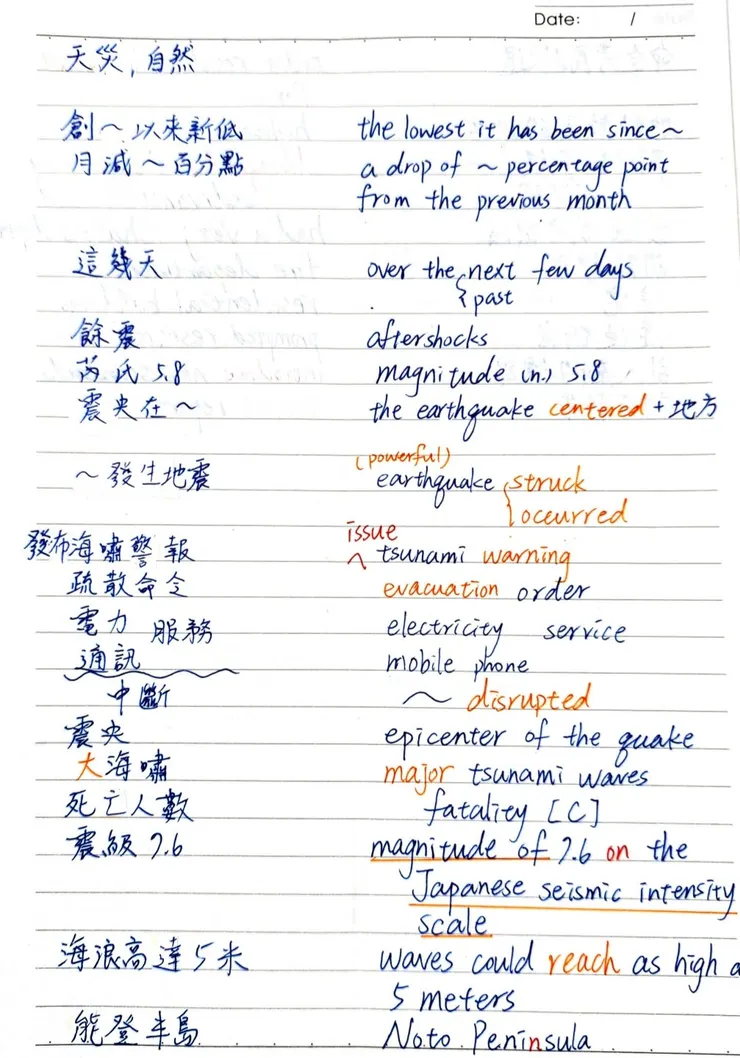 Date: /
天災, 自然
創～以來新低 the lowest it has been since～
月減～百分點 a drop of ～ percentage point
from the previous month
這幾天 over the next few days
past
餘震 aftershocks
芮氏 5.8 magnitude (n.) 5.8
震央在～ the earthquake centered + 地方
(powerful)
～發生地震 earthquake struck
occurred
issue
發布海嘯警報 ^ tsunami warning
疏散命令 evacuation order
電力 服務 electricity service
通訊 mobile phone
中斷 ～ disrupted
震央 epicenter of the quake
大海嘯 major tsunami waves
死亡人數 fatality [C]
震級 7.6 magnitude of 7.6 on the
Japanese seismic intensity
scale
海浪高達5米 waves could reach as high a
5 meters
能登半島 Noto Peninsula